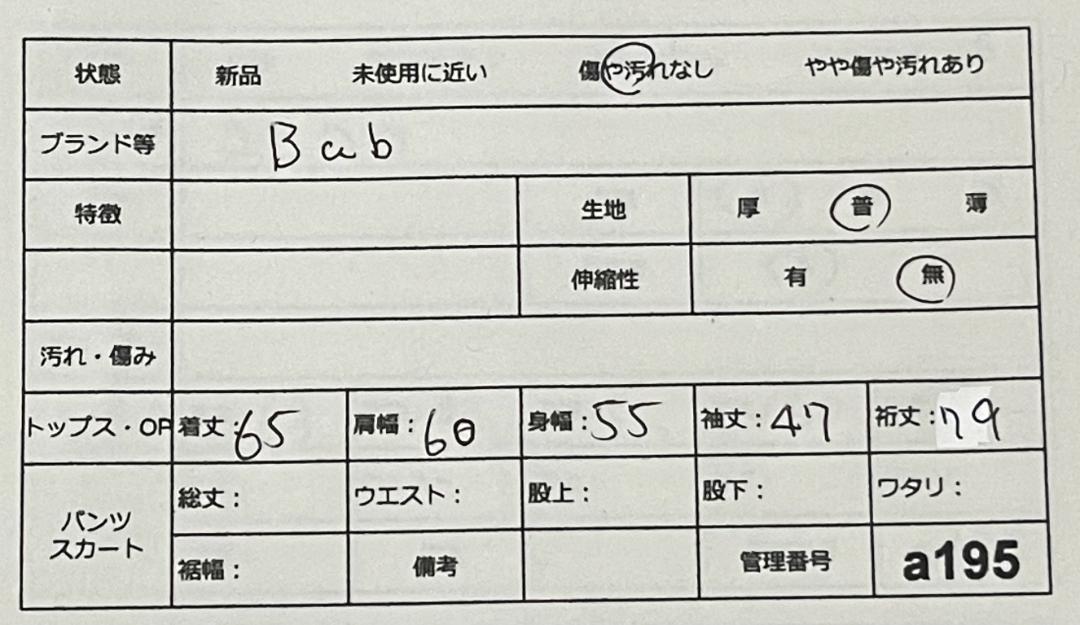 状態 新品 未使用に近い 傷や汚れなし やや傷や汚れあり
ブランド等 Bab
特徴 生地 厚 普 薄
伸縮性 有 無
汚れ・傷み
トップス・OP 着丈:65 肩幅:60 身幅:55 袖丈:47 裄丈:79
パンツ
スカート
総丈: ウエスト: 股上: 股下: ワタリ:
裾幅: 備考 管理番号 a195